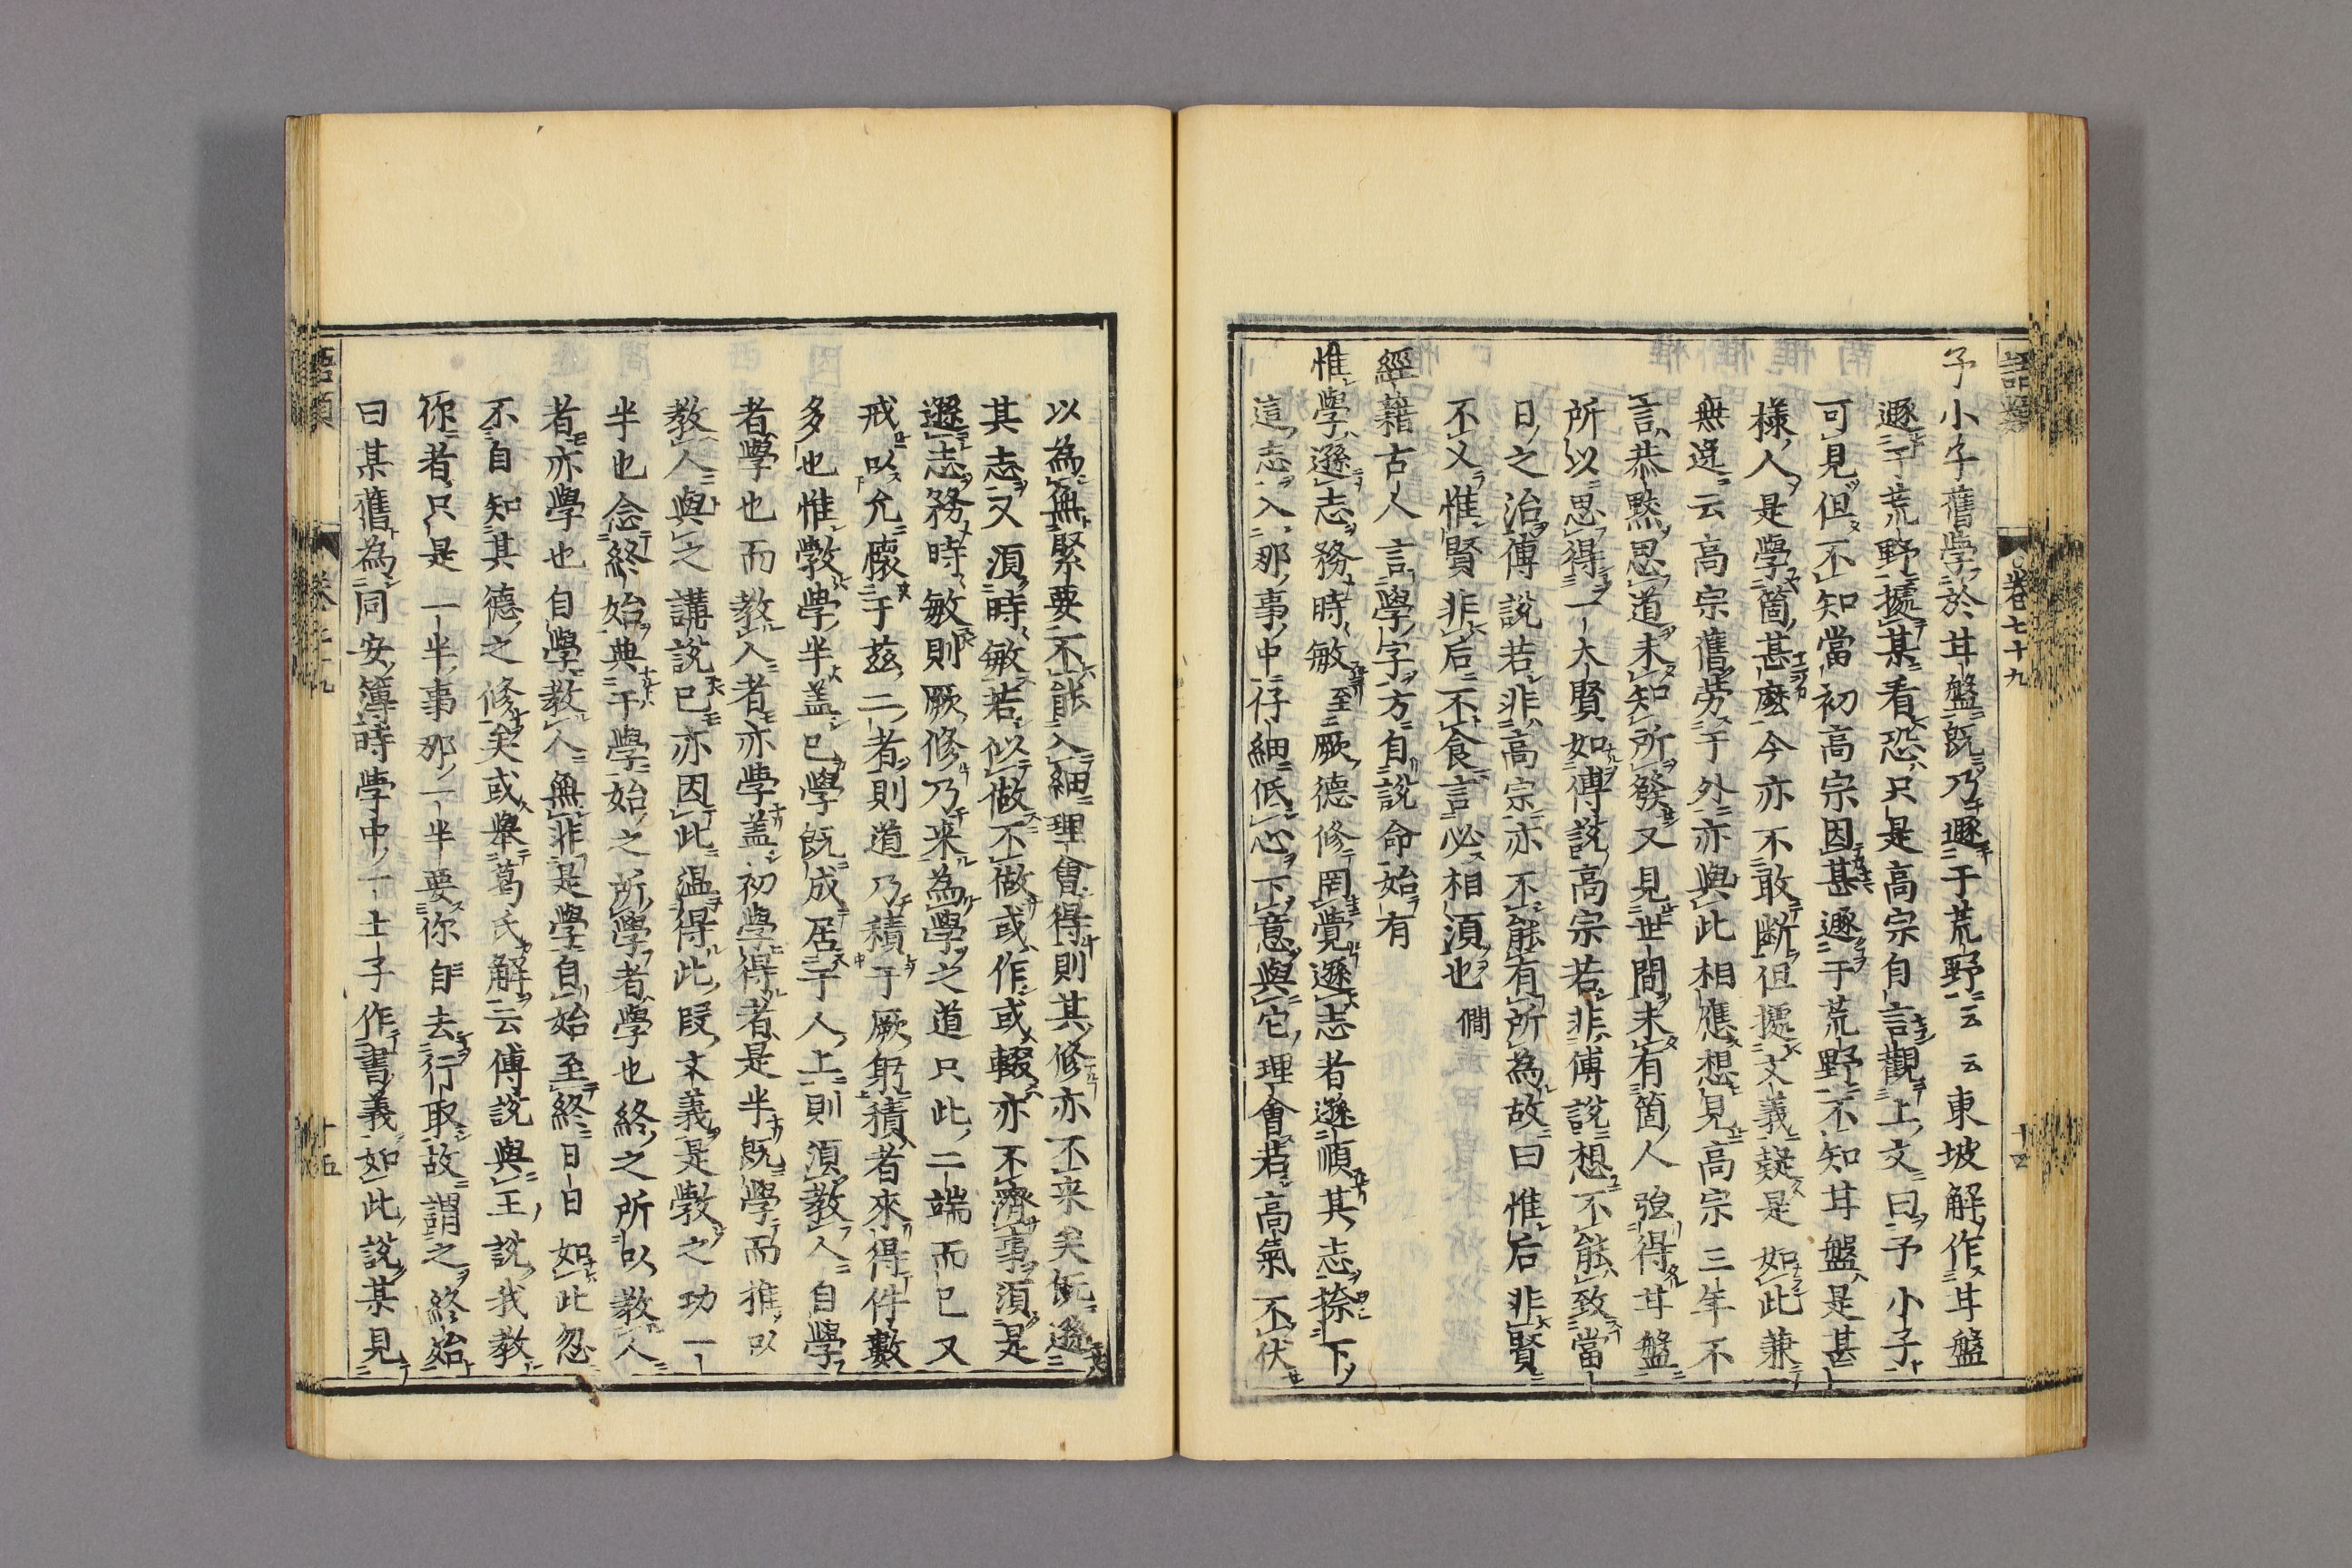 語類
卷七十九
十四
予小子舊學於甘盤既乃遯于荒野云云東坡解作甘盤
遯于荒野據某看恐只是高宗自言觀上文曰予小子
可見但不知當初高宗因甚遯于荒野不知甘盤是甚
樣人是學箇甚麼今亦不敢斷但據文義疑是如此兼
無逸云高宗舊勞于外亦與此相應想見高宗三年不
言恭默思道未知所發又見世間未有箇人強得甘盤
所以思得一大賢如傅說高宗若非傅說想不能致當
日之治傅說若非高宗亦不能有所為故曰惟后非賢
不乂惟賢非后不食言必相須也僩
經籍古人言學字方自說命始有
惟學遜志務時敏至厥德修罔覺遜志者遜順其志捺下
這志入那事中仔細低心下意與它理會若高氣不伏
以為無緊要不能入細理會得則其修亦不来矣既遜
其志又須時敏若似做不做或作或輟亦不濟事須是
遜志務時敏則厥修乃来為學之道只此二端而已又
戒以允懷于茲二者則道乃積于厥躬積者來得件數
多也惟斆學半盖已學既成居于人上則須教人自學
者學也而教人者亦學盖初學得者是半既學而推以
教人與之講說已亦因此温得此段文義是斆之功一
半也念終始典于學始之所學者學也終之所以教人
者亦學也自學教人無非是學自始至終日日如此忽
不自知其德之修矣或舉葛氏解云傅說與王說我教
你者只是一半事那一半要你自去行取故謂之終始
曰某舊為同安簿時學中一士子作書義如此說某見
語類
十五